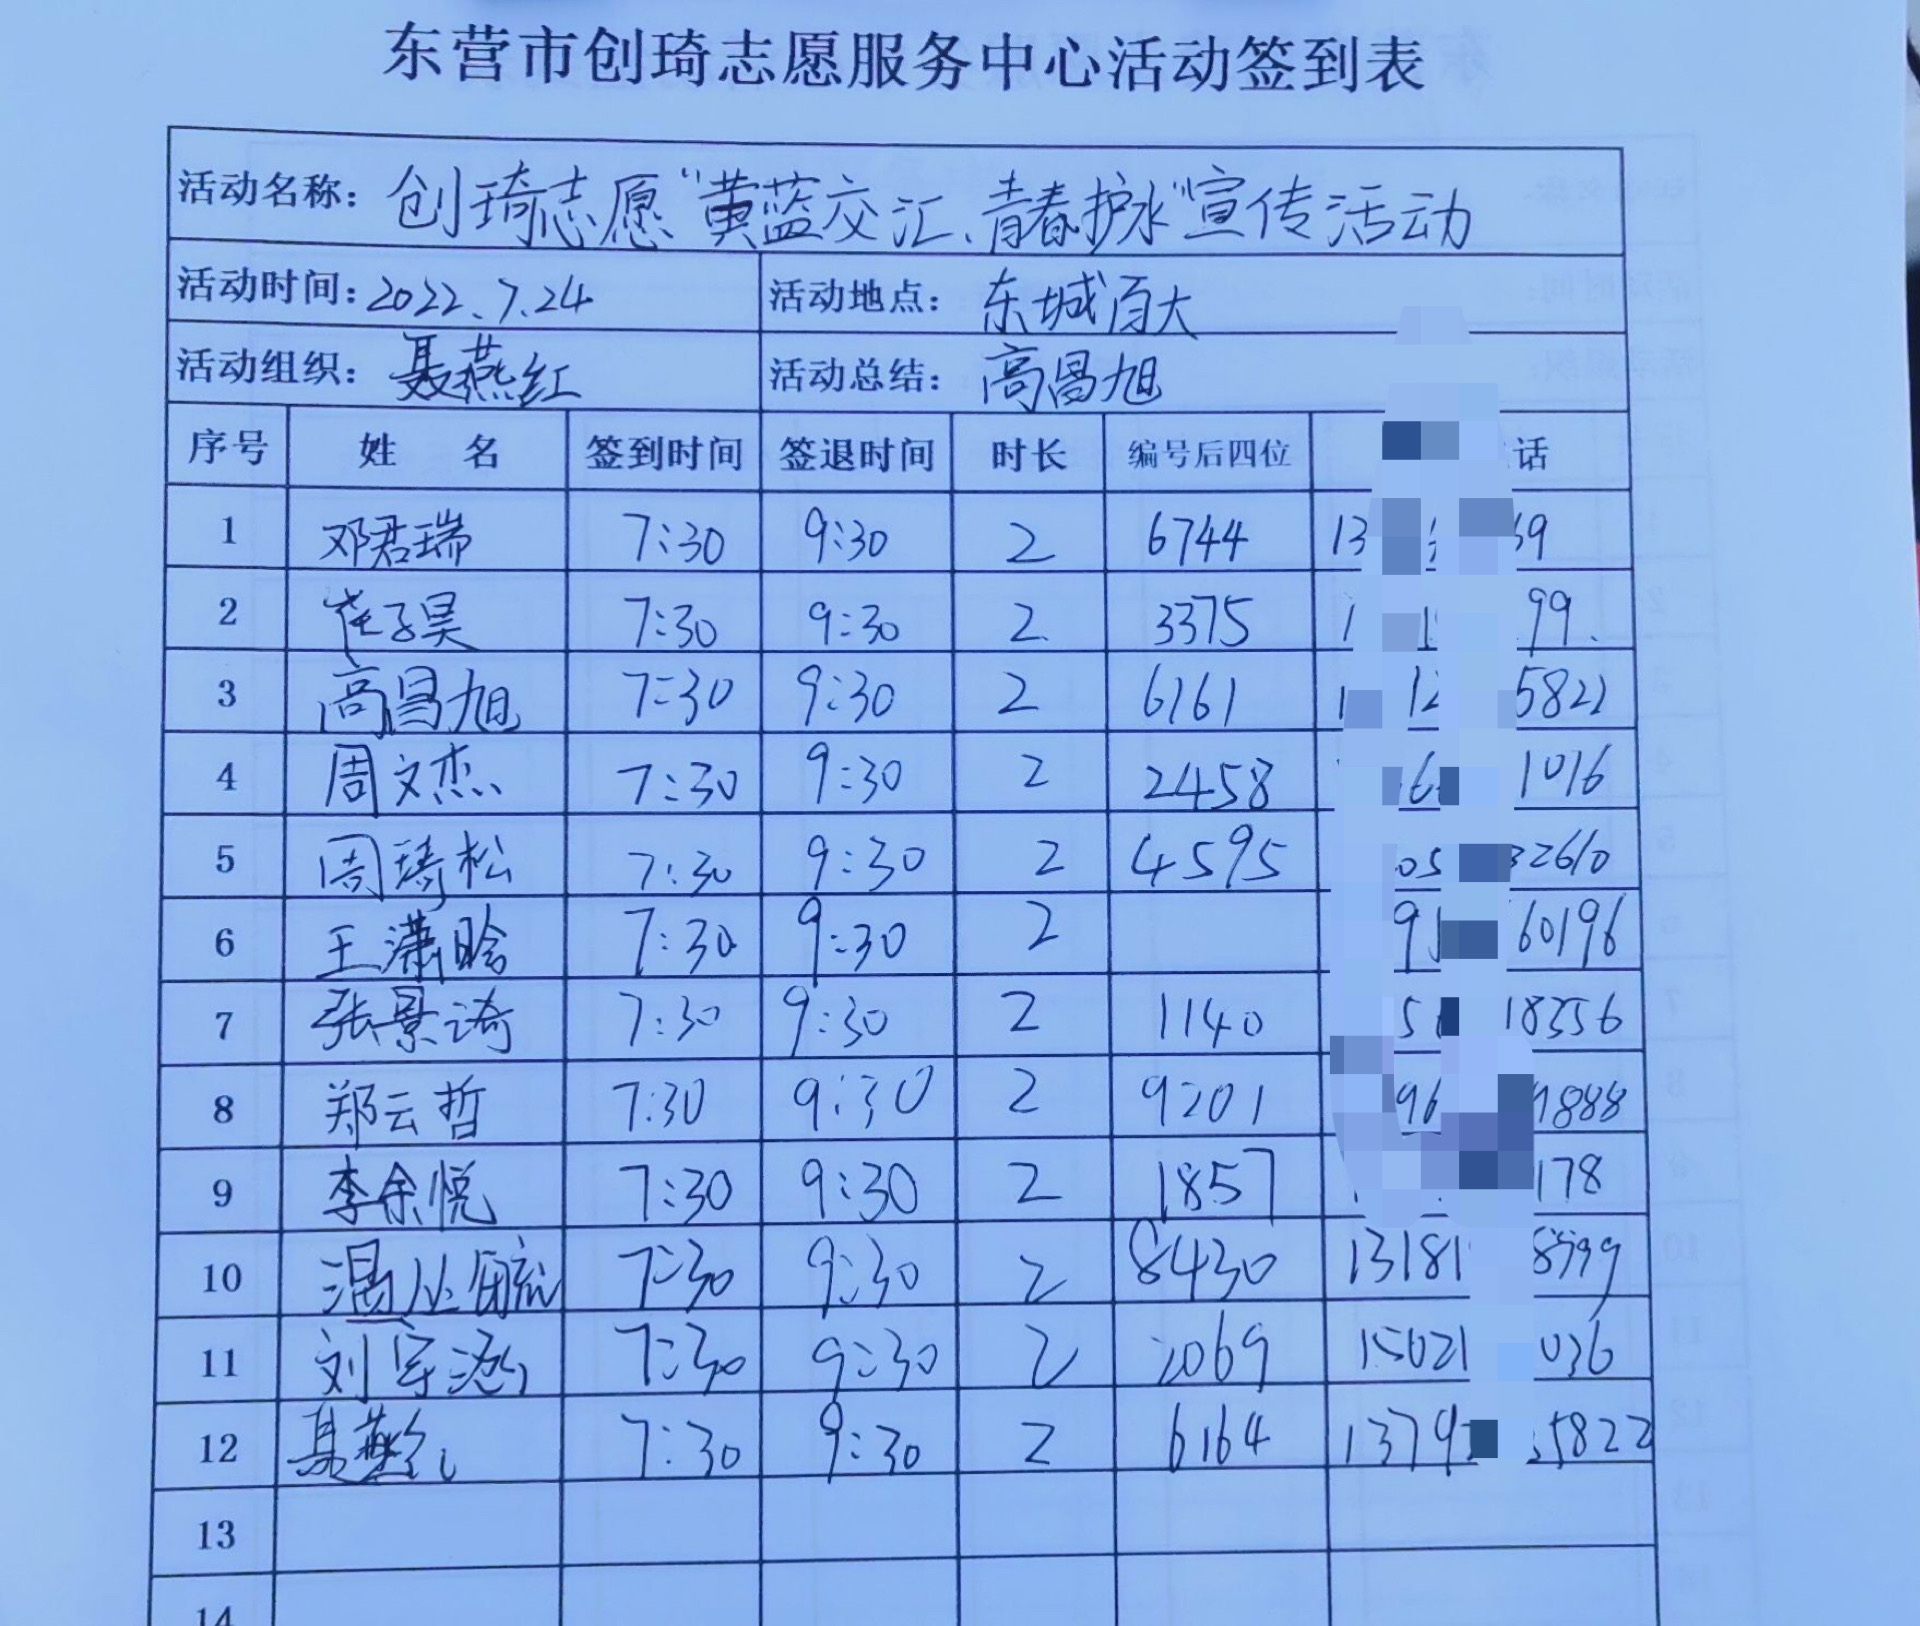 东营市创琦志愿服务中心活动签到表
活动名称：创琦志愿“黄蓝交汇、青春护水”宣传活动
活动时间：2022.7.24 活动地点：东城百大
活动组织：聂燕红 活动总结：高昌旭
序号 姓名 签到时间 签退时间 时长 编号后四位 话
1 邓君瑞 7:30 9:30 2 6744 13 69
2 崔子昊 7:30 9:30 2 3375 1 1 99.
3 高昌旭 7:30 9:30 2 6161 1 12 5822
4 周文杰 7:30 9:30 2 2458 6 1016
5 周琦松 7:30 9:30 2 4595 05 32610
6 王潇晗 7:30 9:30 2 9 60196
7 张景琦 7:30 9:30 2 1140 5 18356
8 郑云哲 7:30 9:30 2 9201 96 9888
9 李余悦 7:30 9:30 2 1857 178
10 温 7:30 9:30 2 8430 13181 8999
11 刘宇涵 7:30 9:30 2 2069 15021 036
12 聂燕红 7:30 9:30 2 6164 1379 5822
13
14